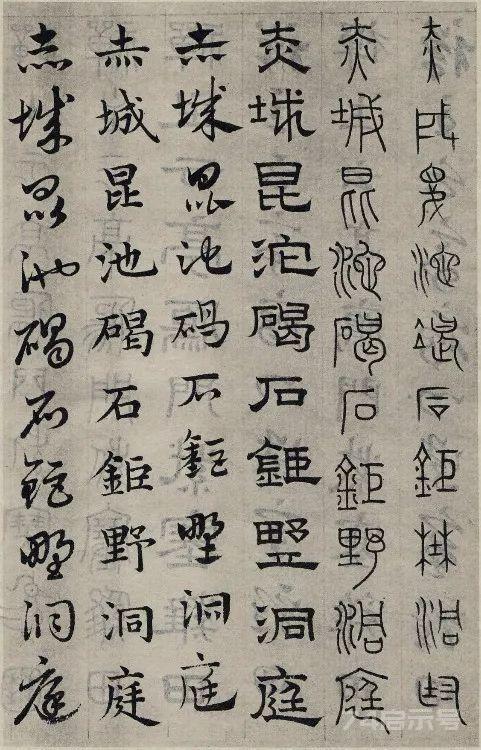 赤城昆池碣石鉅野洞庭
赤城昆池碣石鉅野洞庭
赤城昆池碣石鉅野洞庭
赤城昆池碣石鉅野洞庭
赤城昆池碣石鉅野洞庭
赤城昆池碣石鉅野洞庭
启示号